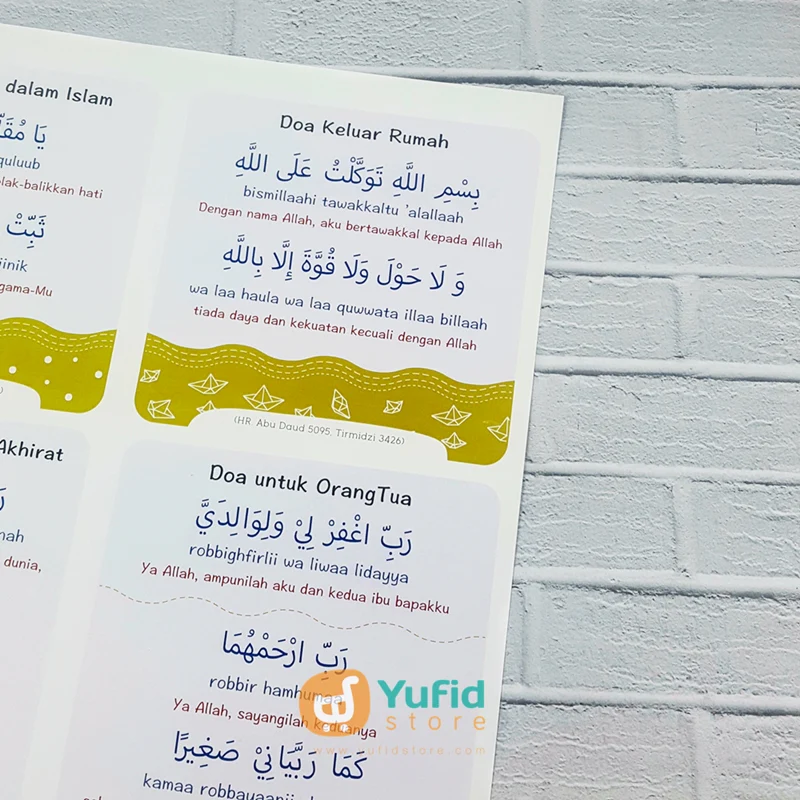 dalam Islam
quluub
lak-balikkan hati
ثَبِّتْ
iinik
gama-Mu
Doa Keluar Rumah
بِسْمِ اللَّهِ تَوَكَّلْتُ عَلَى اللَّهِ
bismillaahi tawakkaltu 'alallaah
Dengan nama Allah, aku bertawakkal kepada Allah
وَ لَا حَوْلَ وَلَا قُوَّةَ إِلَّا بِاللَّهِ
wa laa haula wa laa quwwata illaa billaah
tiada daya dan kekuatan kecuali dengan Allah
(HR. Abu Daud 5095, Tirmidzi 3426)
Akhirat
nah
dunia,
Doa untuk OrangTua
رَبِّ اغْفِرْ لِيْ وَلِوَالِدَيَّ
robbighfirlii wa liwaa lidayya
Ya Allah, ampunilah aku dan kedua ibu bapakku
رَبِّ ارْحَمْهُمَا
robbir hamhumaa
Ya Allah, sayangilah keduanya
كَمَا رَبَّيَانِيْ صَغِيرًا
kamaa robbayaanii
Yufid
store
www.yufidstore.com